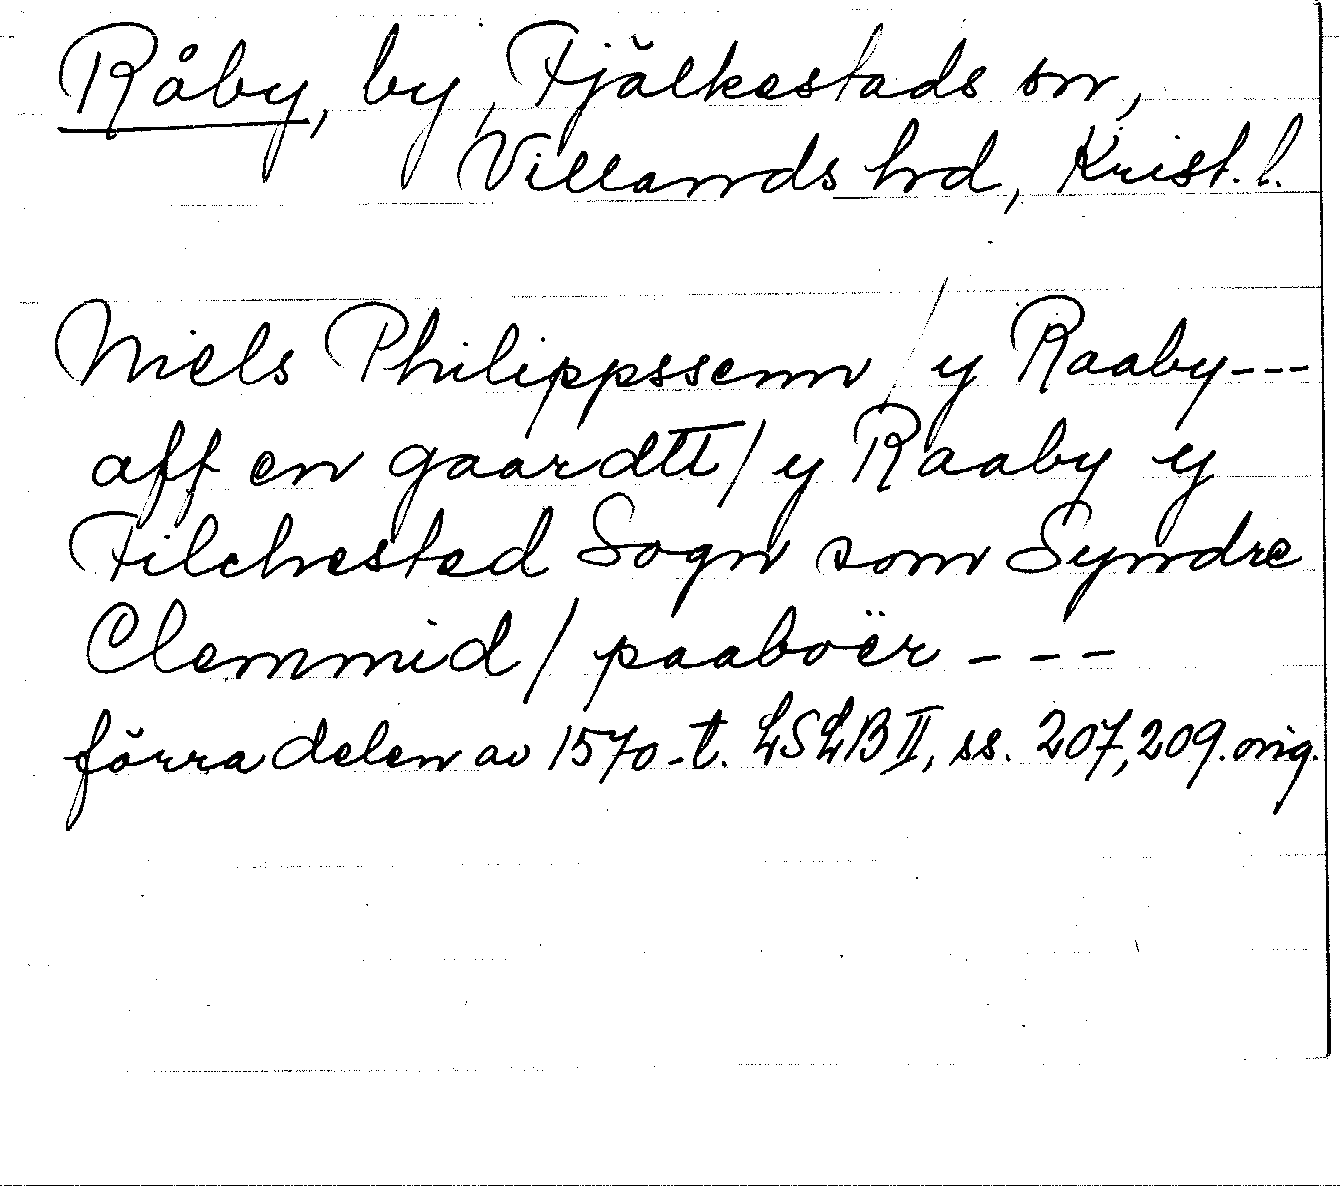 Råby, by, Fjälkestads sn,
Villands hd, Krist. l.
Niels Philippssenn / y Raaby ---
aff en gaardtt / y Raaby y
Filchested Sogn som Syndre
Clemmid / paaboër - - -
förra delen av 1570-t. LSLB II, ss. 207, 209. orig.